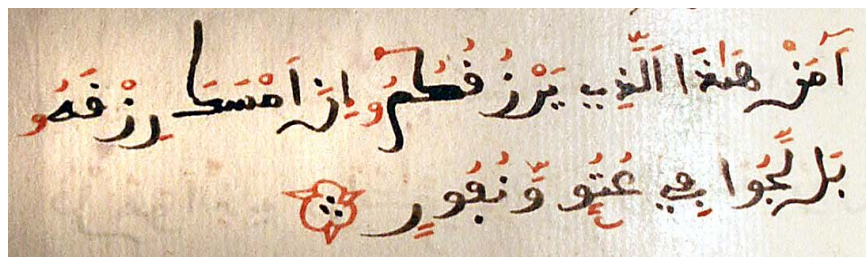 أَمَّنْ هَٰذَا اَلَّذِے يَرْزُقُكُمُۥٓ إِنَ اَمْسَكَ رِزْقَهُۥ
بَل لَّجُّواْ فِے عُتُوٍّ وَّنُفُورٍ